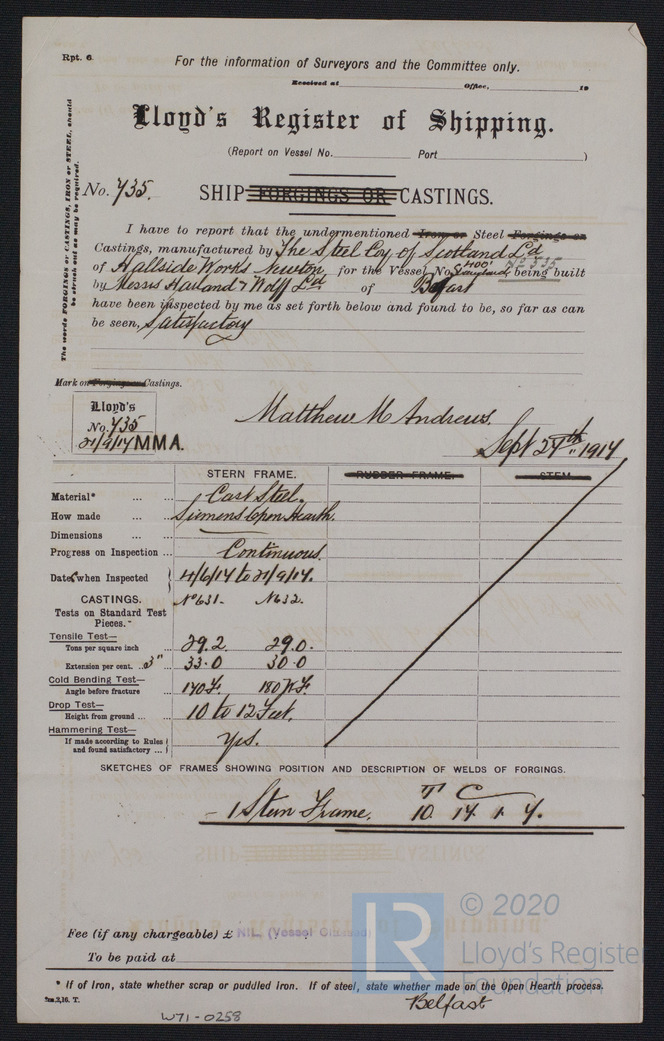 Rpt. 6.
For the information of Surveyors and the Committee only.
Received at Office, 19
Lloyd's Register of Shipping.
(Report on Vessel No. Port )
The words FORGINGS or CASTINGS, IRON or STEEL, should
be struck out as may be required.
No. 735.
SHIP FORGINGS OR CASTINGS.
I have to report that the undermentioned Iron or Steel Forgings or
Castings, manufactured by The Steel Coy of Scotland Ld
of Hallside Works Newton, for the Vessel No. 400 being built
by Messrs Harland & Wolff Ld of Belfast
have been inspected by me as set forth below and found to be, so far as can
be seen, Satisfactory
Mark on Forgings or Castings.
Lloyd's
No. 735
21/9/14 MMA.
Matthew M Andrews.
Sept 24th 1914
STERN FRAME. RUDDER FRAME. STEM.
Material* ... ... Cast Steel.
How made ... ... Siemens Open Hearth.
Dimensions ... ...
Progress on Inspection ... Continuous.
Dates when Inspected 4/6/14 to 21/9/14.
CASTINGS. No 631. No 632.
Tests on Standard Test
Pieces.-
Tensile Test—
Tons per square inch 29.2. 29.0.
Extension per cent. ..3" ... 33.0 30.0
Cold Bending Test—
Angle before fracture 180
Drop Test—
Height from ground ... ... 10 to 12 Feet.
Hammering Test—
If made according to Rules
and found satisfactory ... Yes.
SKETCHES OF FRAMES SHOWING POSITION AND DESCRIPTION OF WELDS OF FORGINGS.
T C
- 1 Stern Frame. 10. 14. 1. 7.
Fee (if any chargeable) £ NIL. (Vessel Classed)
To be paid at
* If of Iron, state whether scrap or puddled Iron. If of steel, state whether made on the Open Hearth process.
Belfast
W71-0258
LR
© 2020
Lloyd's Register
Foundation